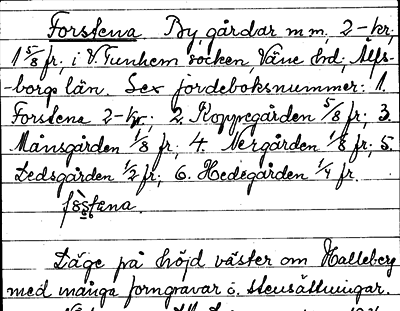 Forstena. By, gårdar m.m., 2-kr,
1 5/8 fr, i V. Tunhem socken, Väne hd, Älfs-
-borgs län. Sex jordeboksnummer: 1.
Forstena 2-kr; 2. Koppregården 5/8 fr; 3.
Månsgården 1/8 fr; 4. Nergården 1/8 fr; 5.
Ledsgården 1/2 fr; 6. Hedegården 1/4 fr.
Läge på höjd väster om Halleberg
med många forngravar o. stensättningar.